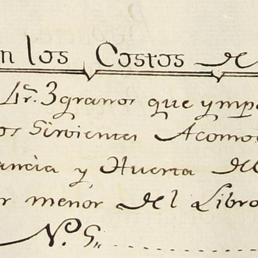 n los Costos de
4r. 3 granos que ymp
os Sirvientes Acomo
ancia y Huerta del
r menor del Libro
N.º 5.